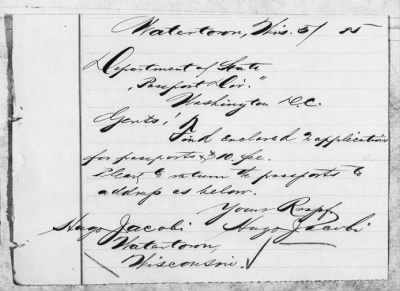 Watertown, Wis. 5/ 85
Department of State
„Passport Div."
Washington D.C.
Gents!
Find enclosed 2 application
for passports & $10. fee.
Please to return the passports to
address as below.
Your Resp
Hugo Jacobi Hugo Jacobi
Watertown,
Wisconsin.